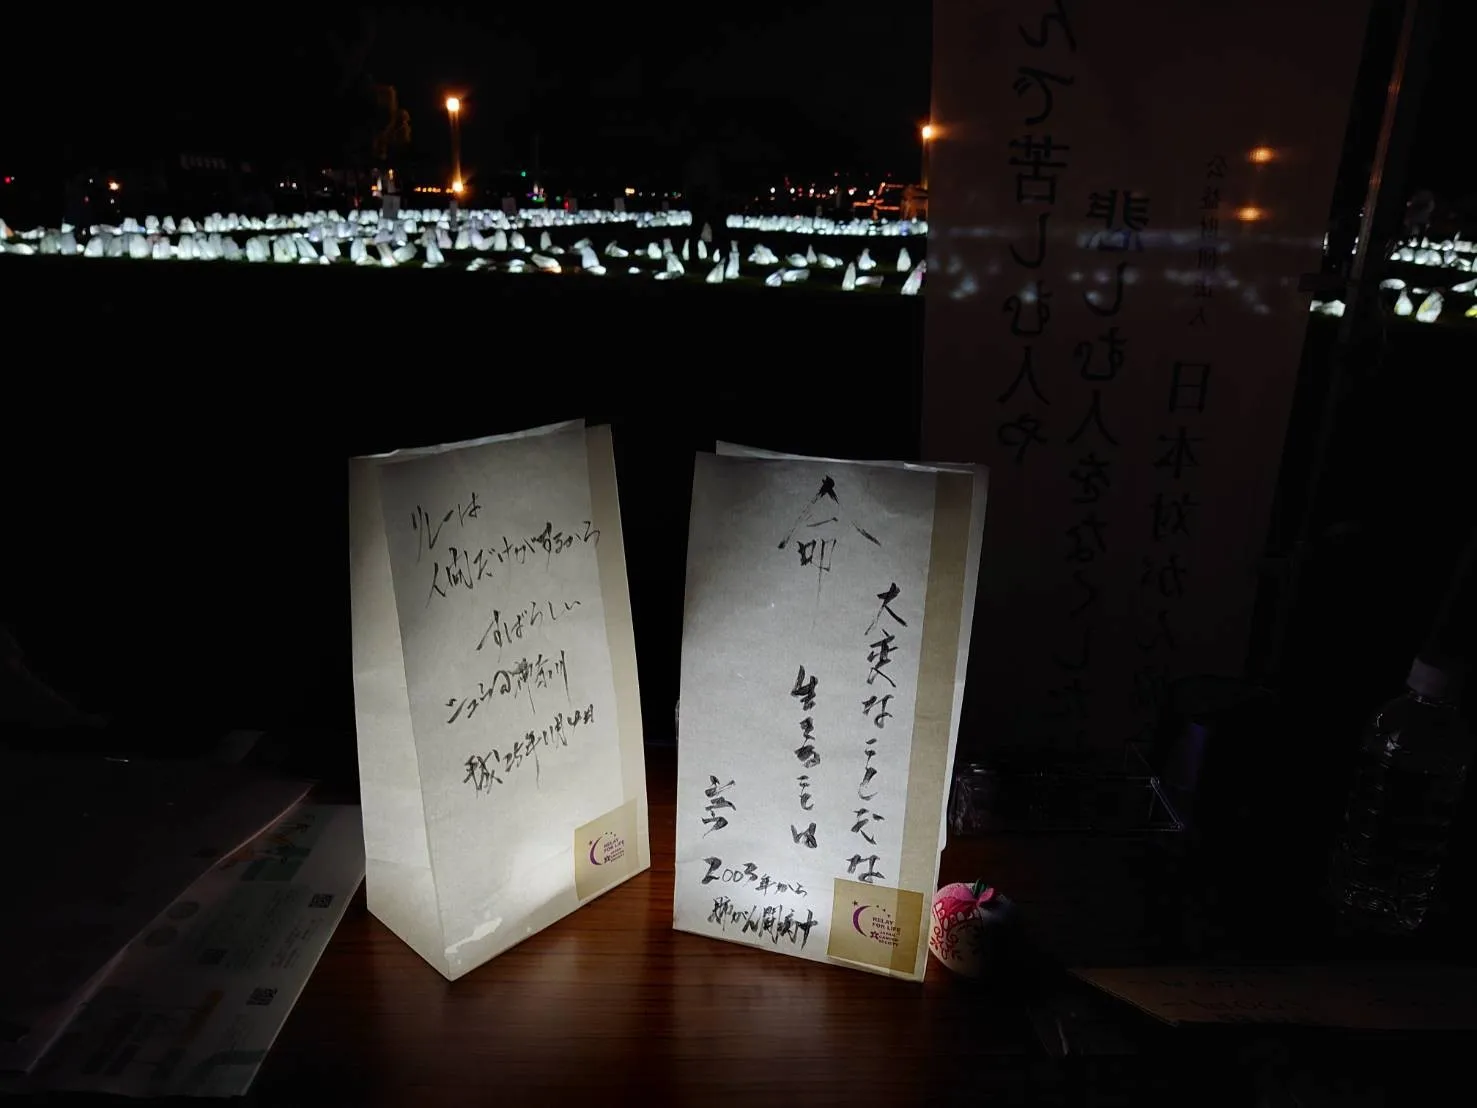 リレーは
人間だけができるから
すばらしい
神奈川
25年11月4日
RELAY
FOR LIFE
JAPAN
CANCER
SOCIETY
命
大変なことだな
生きることは
2003年から
肺がん闘病
RELAY
FOR LIFE
JAPAN
CANCER
SOCIETY
公益財団法人
日本対がん
悲しむ人をなくした
んで苦しむ人や